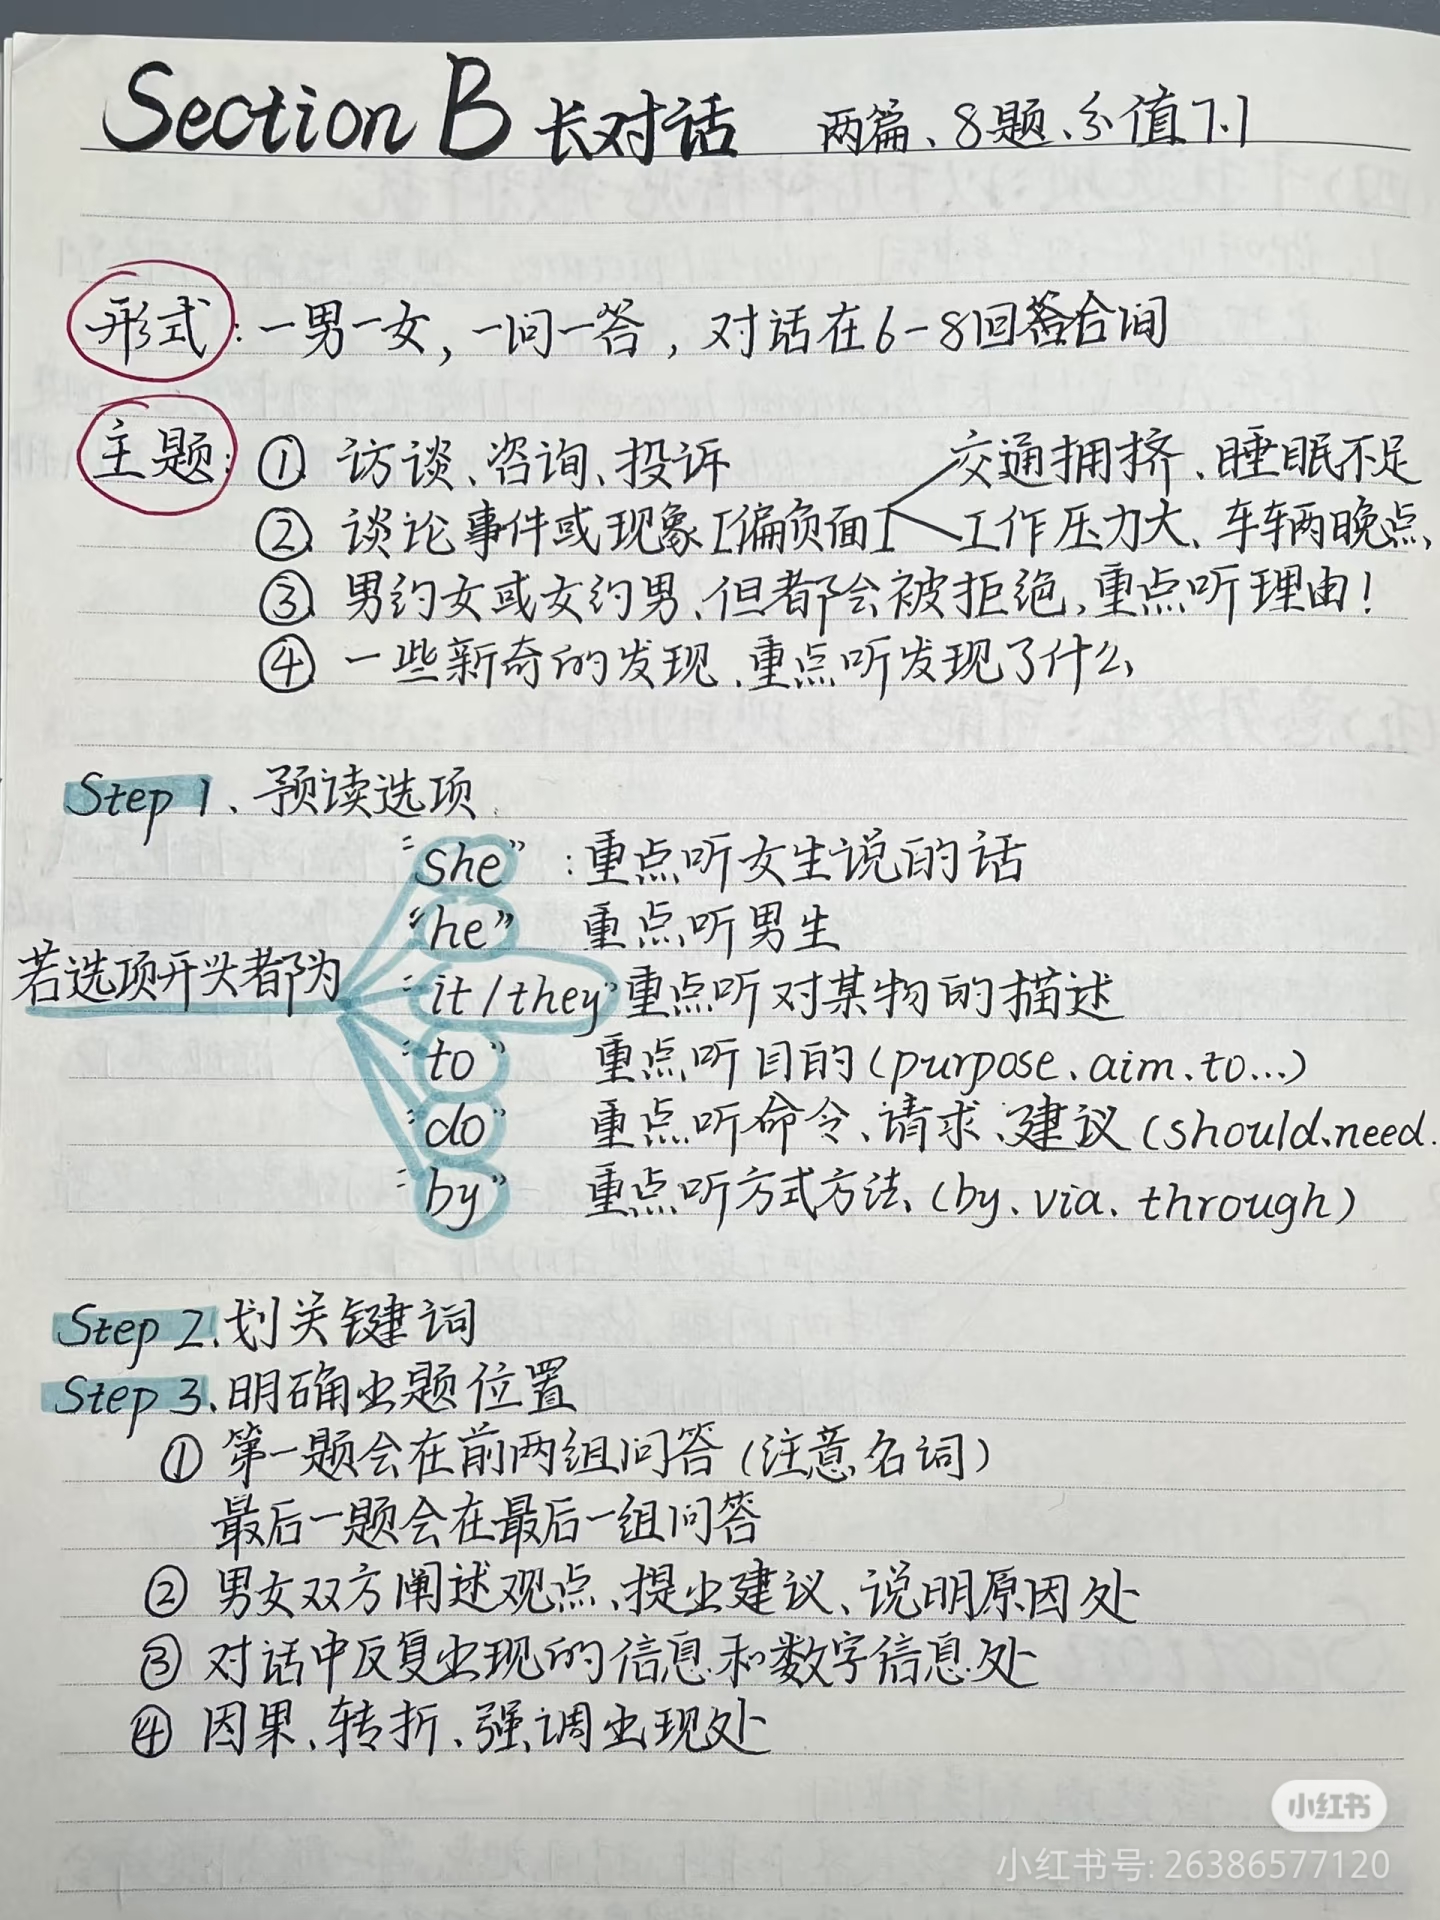 Section B 长对话 两篇、8题、分值7.1
形式：一男一女，一问一答，对话在6-8回合间
主题：① 访谈、咨询、投诉 交通拥挤、睡眠不足
② 谈论事件或现象[偏负面] 工作压力大、车辆晚点、
③ 男约女或女约男、但都会被拒绝，重点听理由！
④ 一些新奇的发现、重点听发现了什么
Step 1、预读选项
"she"：重点听女生说的话
"he" 重点听男生
若选项开头都为
"it/they" 重点听对某物的描述
"to" 重点听目的(purpose、aim、to...)
"do" 重点听命令、请求、建议(should、need.
"by" 重点听方式方法、(by、via、through)
Step 2、划关键词
Step 3、明确出题位置
① 第一题会在前两组问答(注意名词)
最后一题会在最后一组问答
② 男女双方阐述观点、提出建议、说明原因处
③ 对话中反复出现的信息和数字信息处
④ 因果、转折、强调出现处
小红书
小红书号: 26386577120